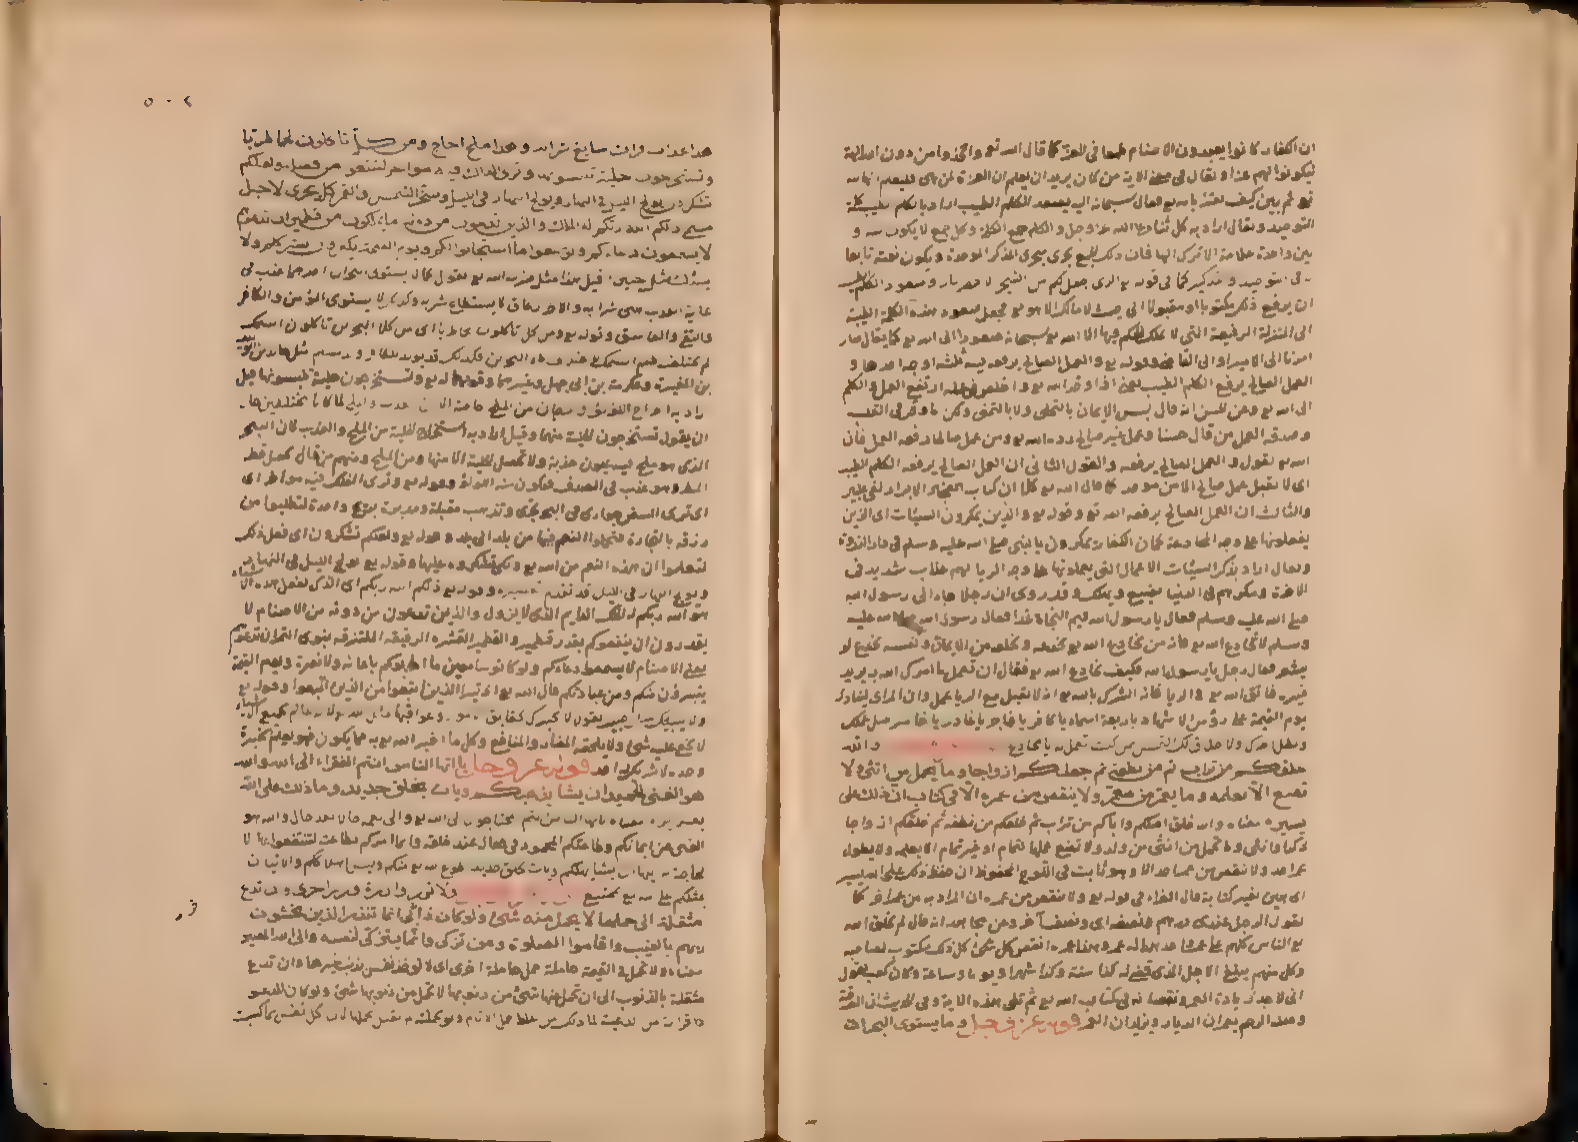 ان الكفار كانوا يعبدون الاصنام طمعا فى العزة كما قال الله تعالى واتخذوا من دون الله الهة
ليكونوا لهم عزا ويقال فى معنى الاية من كان يريد ان يعلم ان العزة لمن هى فليعلم انها لله
ثم بين كيف يعتز بالله فقال سبحانه اليه يصعد الكلم الطيب اراد بالكلم الطيب كلمة
التوحيد ويقال اراد به كل ثناء على الله عز وجل والكلم جمع الكلمة وكل جمع لا يكون بينه و
بين واحده علامة الا ترك الهاء فان ذلك الجمع يجرى مجرى المذكر الواحد ويكون نعته تابعا
ان يرفع ذلك مكتوبا او مقبولا الى حيث لا مالك الا هو فجعل صعود هذه الكلمة الطيبة
الى المنزلة الرفيعة التى لا يملك الحكم فيها الا الله سبحانه صعودا الى الله كما يقال صار
امرنا الى الامير او الى القاضى وقوله والعمل الصالح يرفعه فيه ثلثة اوجه احدها و
العمل الصالح يرفع الكلم الطيب
الى الله وعن الحسن انه قال ليس الايمان بالتحلى ولا بالتمنى ولكن ما وقر فى القلب
وصدقه العمل من قال حسنا وعمل غير صالح رده الله ومن عمل صالحا رفعه العمل فان
الله يقول والعمل الصالح يرفعه والقول الثانى ان العمل الصالح يرفعه الكلم الطيب
اى لا يقبل عمل صالح الا من موحد كما قال الله كلا ان كتاب الابرار لفى عليين
والثالث ان العمل الصالح يرفعه الله وقوله والذين يمكرون السيئات اى الذين
يفعلونها على وجه المخادعة كما ان الكفار يمكرون بالنبى صلى الله عليه وسلم فى دار الندوة
ويقال اراد بذكر السيئات الاعمال التى يعملونها على وجه الريا لهم عذاب شديد فى
الاخرة ومكرهم فى الدنيا يضيع ويهلك وقد روى ان رجلا جاء الى رسول الله
صلى الله عليه وسلم فقال يا رسول الله فيم النجاة غدا فقال رسول الله صلى الله عليه
وسلم لا تخادع الله فانه من يخادع الله يخدعه ويخلعه من الايمان ونفسه يخدع لو
يشعر فقال رجل يا رسول الله فكيف نخادع الله فقال ان تعمل بما امرك الله به تريد
غيره فاتق الله والريا فانه الشرك بالله ان لا يقبل مع الريا عمل وان المرائى لينادى
يوم القيمة على رؤس الاشهاد باربعة اسماء يا كافر يا فاجر يا غادر يا خاسر ضل عملك
وبطل اجرك ولا خلاق لك التمس ممن كنت تعمل له يا مخادع والله
خلقكم من تراب ثم من نطفة ثم جعلكم ازواجا وما تحمل من انثى ولا
تضع الا بعلمه وما يعمر من معمر ولا ينقص من عمره الا فى كتاب ان ذلك على
يسير معناه والله خلق اصلكم واباكم من تراب ثم خلقكم من نطفة ثم خلقكم ازواجا
ذكرا وانثى وما تحمل من انثى من ولد ولا تضع حملها لتمام او غير تمام الا بعلمه ولا يطول
عمر احد ولا ينقص من عمر احد الا وهو ثابت فى اللوح المحفوظ ان حفظ ذلك على الله يسير
اى هين بغير كتابة قال الفراء فى قوله ولا ينقص من عمره ان المراد به من عمر اخر كما
يقول الرجل عندى درهم ونصفه اى ونصف آخر وعن مجاهد انه قال لم يخلق الله
الناس كلهم على عمر واحد
وكل منهم يبلغ الاجل الذى قضى له كذا سنة وكذا شهرا ويوما وساعة وكان كعب يقول
وصلة الرحم يعمران الديار ويزيدان العمر قوله عز وجل وما يستوى البحران
٥٠٢
هذا عذب فرات سايغ شرابه وهذا ملح اجاج ومن كل تا كلون لحما طريا
وتستخرجون حلية تلبسونها وترى الفلك فيه مواخر لتبتغوا من فضله ولعلكم
تشكرون يولج الليل فى النهار ويولج النهار فى الليل وسخر الشمس والقمر كل يجرى لاجل
مسمى ذلكم الله ربكم له الملك والذين تدعون من دونه ما يملكون من قطمير ان تدعوهم
لا يسمعوا دعاءكم ولو سمعوا ما استجابوا لكم ويوم القيمة يكفرون بشرككم ولا
ينبئك مثل خبير قيل هذا مثل ضربه الله يقول كما لا يستوى البحران احدهما عذب فى
غاية العذب هنى شرابه والاخر زعاق لا يستطاع شربه وكذلك لا يستوى المؤمن والكافر
والتقى والفاسق وقوله ومن كل تأكلون لحما طريا اى من كلا البحرين تأكلون السمك
لم يختلف طعم السمك
بن المغيرة وعكرمة بن ابى جهل وغيرهما وقوله وتستخرجون حلية تلبسونها قيل
اراد به اخراج اللؤلؤ والمرجان من الملح خاصة
ان يقول تستخرجون الحلية منهما وقيل اراد به استخراج الحلية من الملح والعذب لان البحر
الذى هو ملح فيه عيون عذبة ولا تحصل الحلية الا منها ومن الملح ومنهم من قال يحصل قطر
المطر وهو عذب فى الصدف فيكون منه اللؤلؤ وقوله وترى الفلك فيه مواخر اى
اى ترى السفن جوارى فى البحر تجرى وتذهب مقبلة ومدبرة بريح واحدة لتطلبوا من
رزقه بالتجارة فتحملوا النعم فيها من بلد الى بلد وقوله ولعلكم تشكرون اى فعل ذلك
لتعلموا ان هذه النعم من الله ولكى تشكروه عليها وقوله يولج الليل فى النهار
ويولج النهار فى الليل قد تقدم تفسيره وقوله ذلكم الله ربكم اى الذى يفعل هذه الاشياء
هو الله ربكم له الملك الدايم الذى لا يزول والذين تدعون من دونه من الاصنام لا
يقدرون ان ينفعوكم بقدر قطمير والقطمير القشرة الرقيقة الملتزقة بنوى التمر ان تدعوهم
يعنى الاصنام لا يسمعوا دعاءكم ولو كانوا سامعين ما اجابوكم باغاثة ولا نصرة ويوم القيمة
يتبرؤن منكم ومن عبادتكم قال الله اذ تبرا الذين اتبعوا من الذين اتبعوا وقوله
ولا ينبئك مثل خبير يقول لا يخبرك بحقايق الامور وعواقبها مثل الله لانه عالم بجميع الاشياء
لا يخفى عليه شئ ولا يلحقه المضار والمنافع وكل ما اخبر الله به مما يكون فهو يعلم بخبره
وحده لا شريك له احد قوله عز وجل يا ايها الناس انتم الفقراء الى الله والله
هو الغنى الحميد ان يشأ يذهبكم ويأت بخلق جديد وما ذلك على الله
بعزيز معناه يا ايها الناس انتم محتاجون الى الله والى نعمه حالا بعد حال والله هو
الغنى عن ايمانكم وطاعتكم المحمود فى فعال عند خلقه وانما امركم بطاعته لتنتفعوا بها لا
لحاجة له اليها ان يشأ يهلككم ويأت بخلق جديد اطوع لله منكم وليس اهلاككم والاتيان
بمثلكم على الله بممتنع ولا تزر وازرة وزر اخرى وان تدع
مثقلة الى حملها لا يحمل منه شئ ولو كان ذا قربى انما تنذر الذين يخشون
ربهم بالغيب واقاموا الصلوة ومن تزكى فانما يتزكى لنفسه والى الله المصير
معناه ولا تحمل فى القيمة حاملة حمل حاملة اخرى اى لا تؤخذ نفس بذنب غيرها وان تدع
مثقلة بالذنوب الى ان تحمل عنها شئ من ذنوبها لا تحمل من ذنوبها شئ ولو كان المدعو